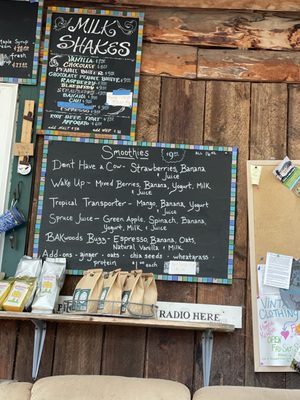 Maple Syrup
Fresh
MILK
SHAKES
VANILLA
CHOCOLATE
PEANUT BUTTER
RASPBERRY
BLUEBERRY
STRAWBERRY
BANANA
ESPRESSO
ROOT BEER FLOAT
AFFOGATO
ADD MALT
Smoothies
ALL 16oz
Don't Have a Cow - Strawberries, Banana
+ Juice
Wake Up - Mixed Berries, Banana, Yogurt, Milk
+ Juice
Tropical Transporter - Mango, Banana, Yogurt
+ Milk
Spruce Juice - Green Apple, Spinach, Banana,
Yogurt, Milk + Juice
BAKwoods Buzz - Espresso, Banana, Oats,
Natural Vanilla + Milk
Add-ons: ginger . oats . chia seeds . wheatgrass
protein
RADIO HERE
VINTAGE
CLOTHING
OPEN